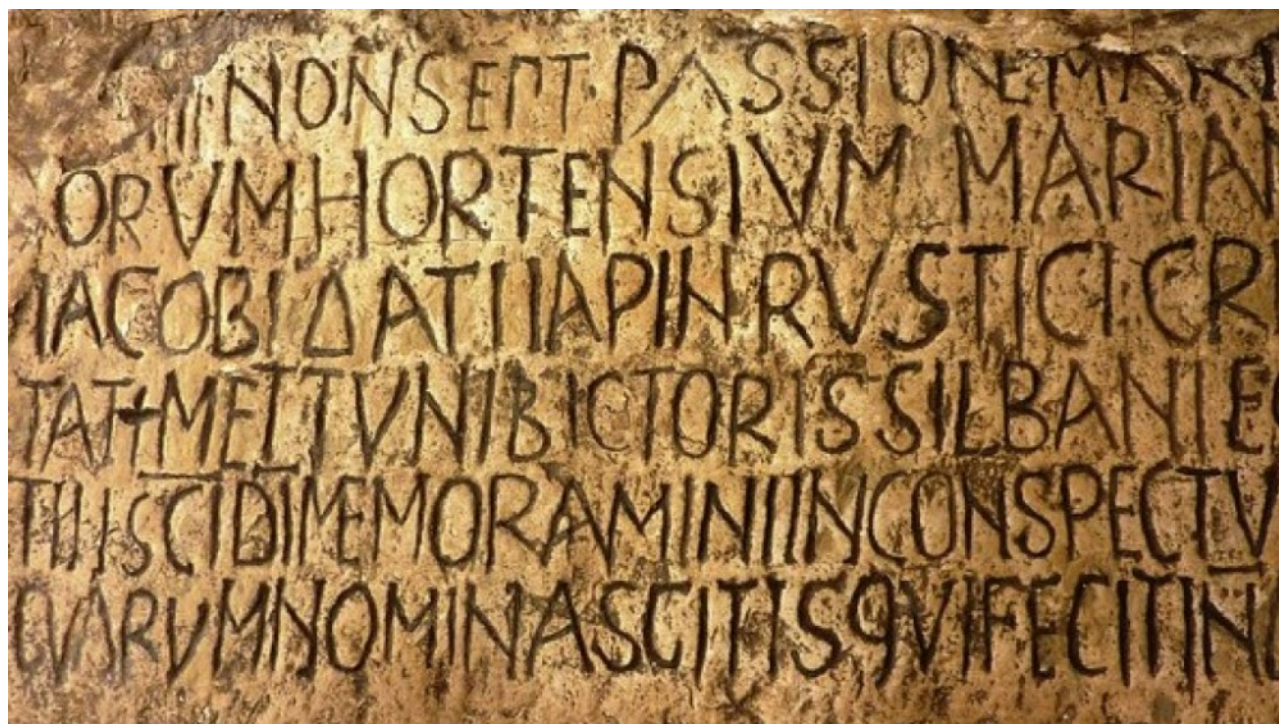 IIII NON SEPT · PASSIONE MARTI
ORVM HORTENSIVM MARIAN
IACOBI DATI IAPIN RVSTICI CR
TAT + METTVNI BICTORIS SILBANI E
TII SCI DI MEMORAMINI IN CONSPECTV
QVARVM NOMINA SCITIS QVI FECIT IN